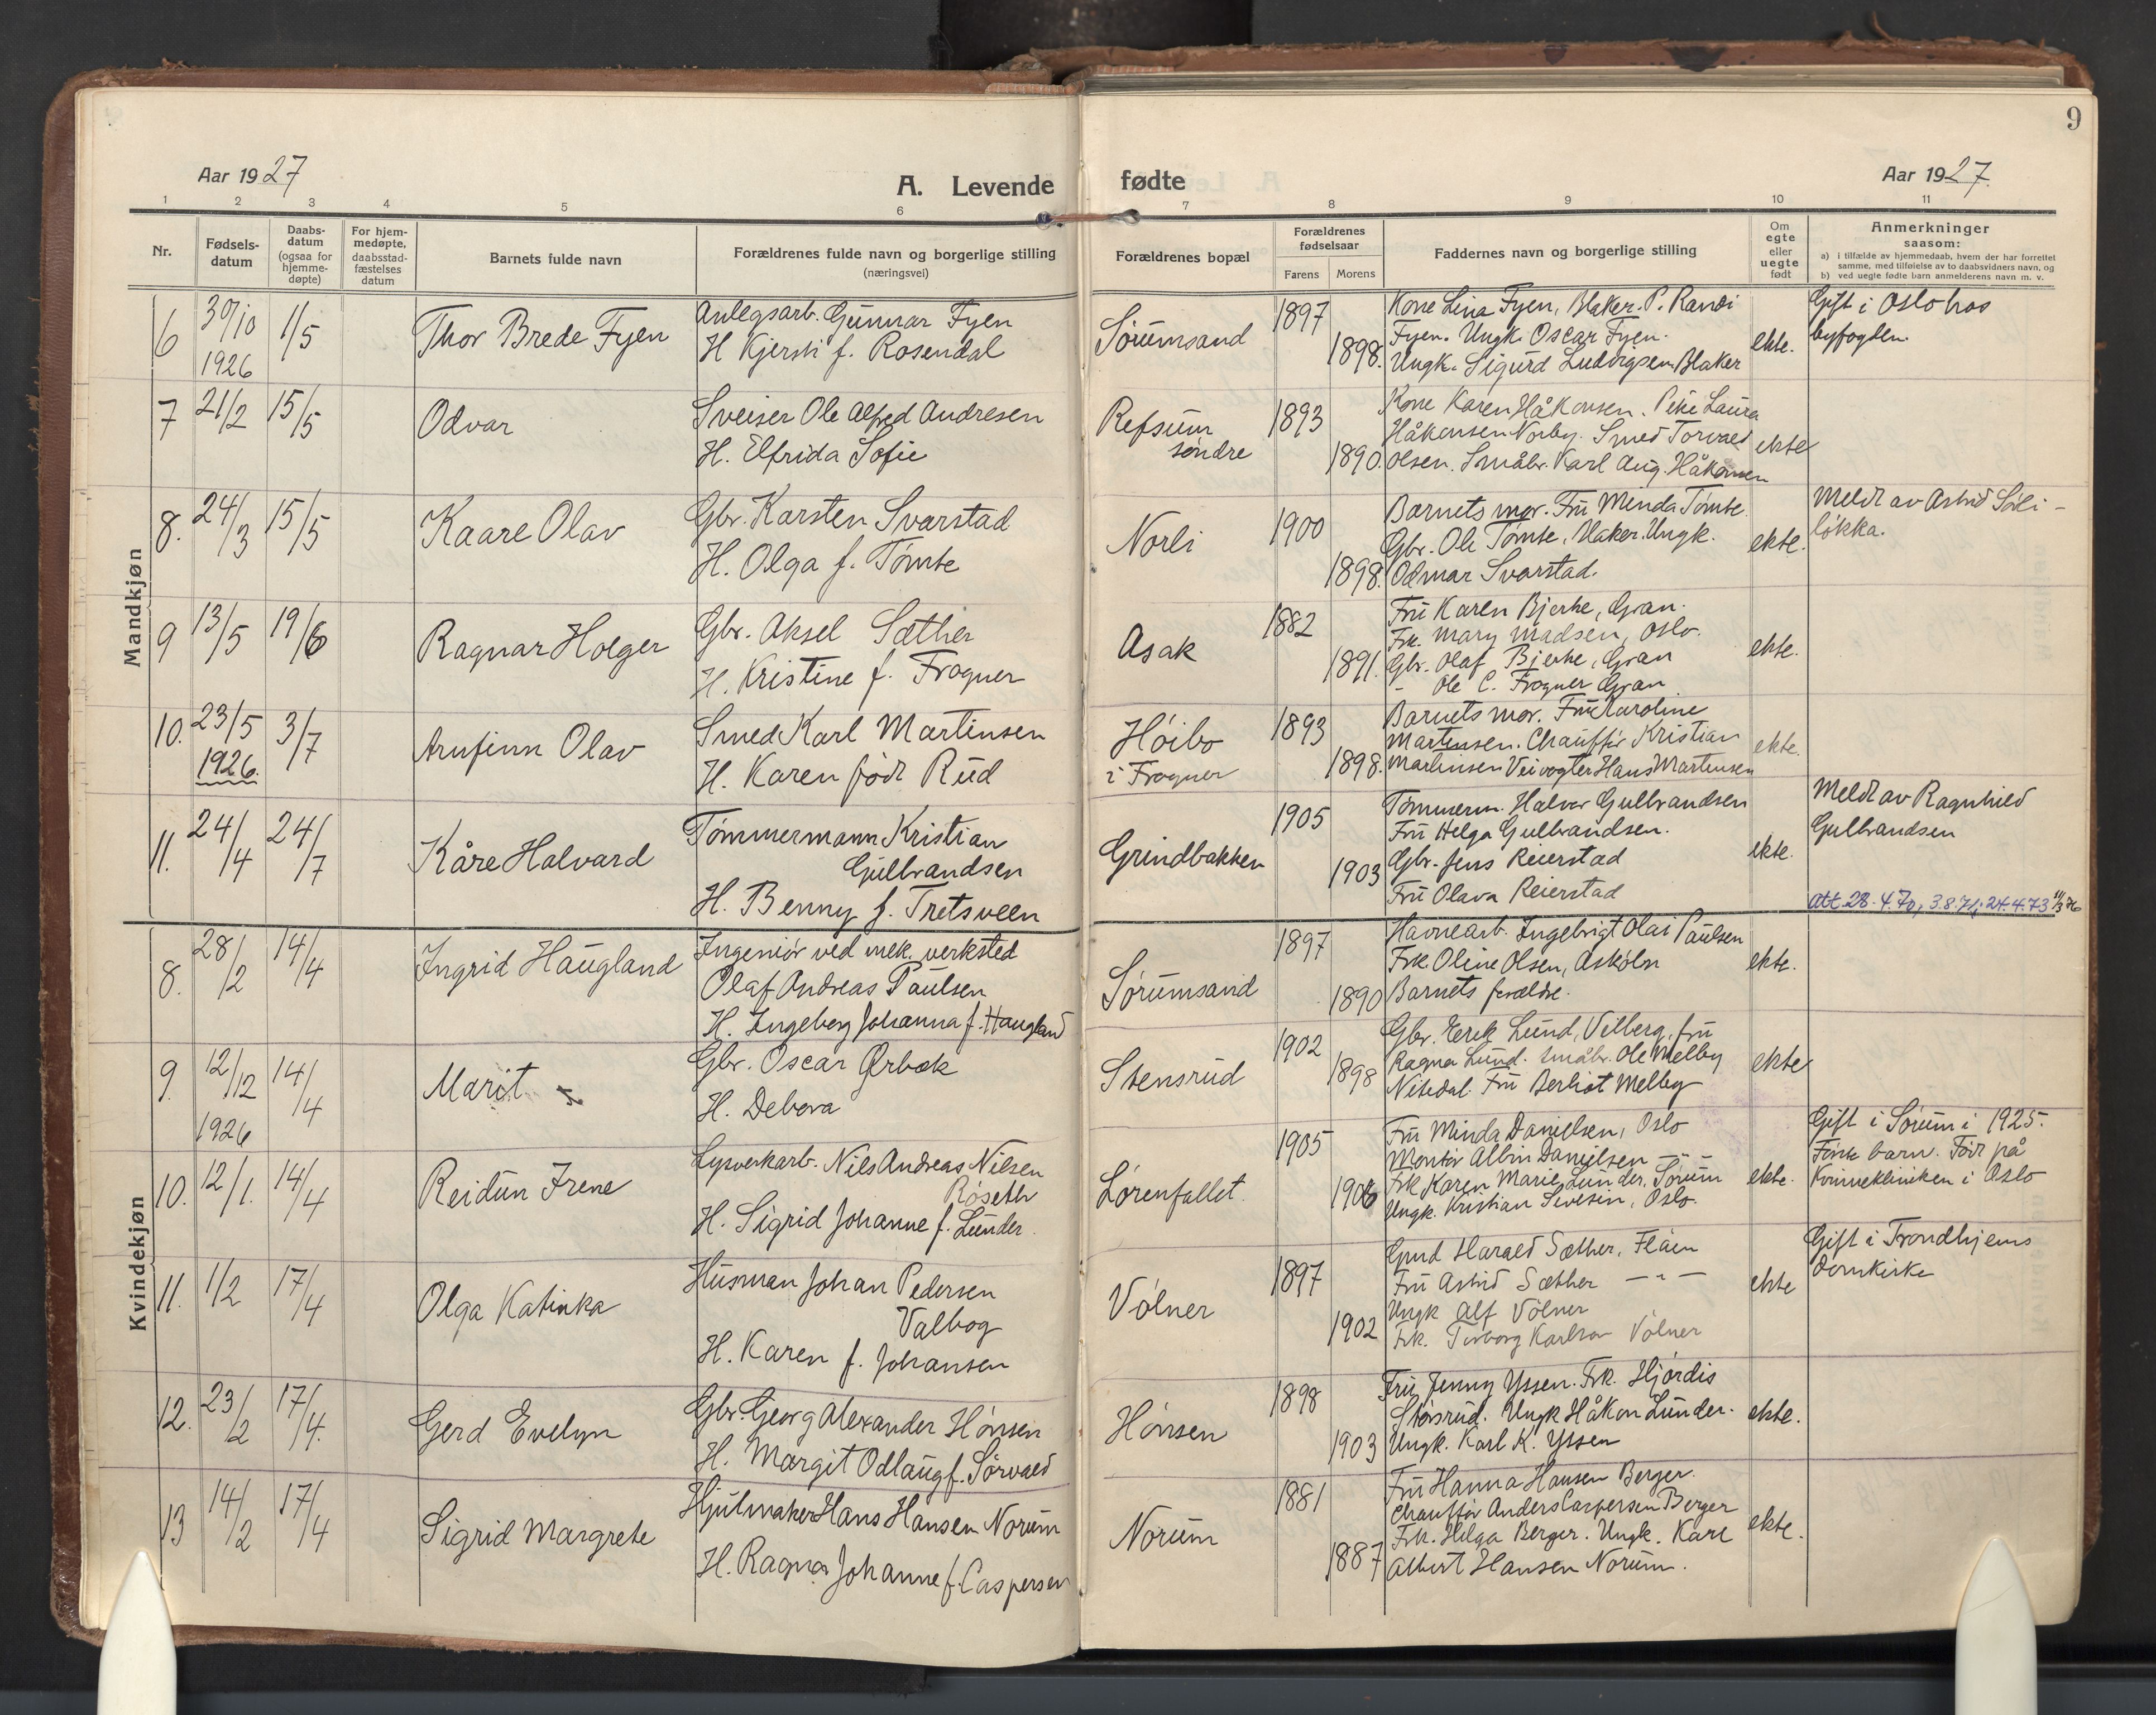 9
Aar 1927
A. Levende fødte
Aar 1927.
1 2 3 4 5 6 7 8 9 10 11
Nr.
Fødsels-
datum
Daabs-
datum
(ogsaa for
hjemme-
døpte)
For hjem-
medøpte,
daabsstad-
fæstelses
datum
Barnets fulde navn
Forældrenes fulde navn og borgerlige stilling
(næringsvei)
Forældrenes bopæl
Forældrenes
fødselsaar
Farens Morens
Faddernes navn og borgerlige stilling
Om
egte
eller
uegte
født
Anmerkninger
saasom:
a) i tilfælde av hjemmedaab, hvem der har forrettet
samme, med tilføielse av to daabsvidners navn, og
b) ved uegte fødte barn anmelderens navn m. v.
Mandkjøn
6 30/10 1926 1/5 Thor Brede Fyen
Anlegsarb. Gunnar Fyen
H Kjersti f. Rosendal
Sørumsand 1897 1898.
Kone Lina Fyen, Blaker. P. Randi
Fyen. Ungk. Oscar Fyen.
Ungk. Sigurd Ludvigsen Blaker
ekte.
Gift i Oslo hos
byfogden.
7 21/2 15/5 Odvar
Sveiser Ole Alfred Andresen
H. Elfrida Sofie
Refsum
søndre
1893 1890.
Kone Karen Håkonsen. Pike Laura
Håkonsen Norby. Smed Torvald
Olsen. Småbr. Karl Aug. Håkonsen
ekte
8. 24/3 15/5 Kaare Olav
Gbr. Karsten Svarstad
H. Olga f. Tømte
Norli 1900 1898.
Barnets mor. Fru Minda Tømte.
Gbr. Ole Tømte, Blaker. Ungk.
Odmar Svarstad.
ekte.
Meldt av Astrid Soli-
løkka.
9 13/5 19/6 Ragnar Holger
Gbr. Aksel Sæther
H. Kristine f. Frogner
Asak 1882 1891.
Fru Karen Bjerke, Gran.
Frk. Mary Madsen, Oslo.
Gbr. Olaf Bjerke, Gran
- Ole C. Frogner Gran
ekte.
10. 23/5 1926. 3/7 Arnfinn Olav
Smed Karl Martinsen
H. Karen født Rud
Høibo
i Frogner
1893 1898.
Barnets mor. Fru Karoline
Martinsen. Chauffør Kristian
Martinsen Veivogter Hans Martinsen
ekte.
11. 24/4 24/7 Kåre Halvard
Tømmermann Kristian
Gulbrandsen
H. Benny f. Tretsveen
Grindbakken 1905 1903
Tømmerm. Halvor Gulbrandsen
Fru Helga Gulbrandsen.
Gbr. Jens Reierstad
Fru Olava Reierstad
ekte.
Meldt av Ragnhild
Gulbrandsen
att. 28.4.70, 3.8.71; 24.4.73 11/3 76
Kvindekjøn
8. 28/2 14/4 Ingrid Haugland
Ingeniør ved mek. verksted
Olaf Andreas Paulsen
H. Ingeborg Johanna f. Haugland
Sørumsand 1897 1890
Havnearb. Ingebrigt Olai Paulsen
Frk. Oline Olsen, Askøln
Barnets forældre.
ekte.
9. 12/12 1926 14/4 Marit
Gbr. Oscar Ørbæk
H. Debora
Stensrud 1902 1898
Gbr. Eerik Lund, Vilberg, fru
Ragna Lund. Småbr. Ole Melby
Nitedal. Fru Berliot Melby
ekte
10. 12/1. 14/4 Reidun Irene
Lysverkarb. Nils Andreas Nilsen
Røseth
H. Sigrid Johanne f. Lunder.
Lørenfallet 1905 1906
Fru Minda Danielsen, Oslo
Montør Albin Danielsen - " -
Frk Karen Marie Lunder, Sørum
Ungk. Kristian Sivesin, Oslo
ekte.
Gift i Sørum i 1925.
Første barn. Født på
Kvinneklinikken i Oslo
11. 1/2 17/4 Olga Katinka
Husman Johan Pedersen
Valbog
H. Karen f. Johansen
Vølner 1897 1902
Gmd Harald Sæther, Flåen
Fru Astrid Sæther - " -
Ungk Alf Vølner
Frk. Torborg Karlson Vølner
ekte
Gift i Trondhjems
Domkirke
12. 23/2 17/4. Gerd Evelyn
Gbr. Georg Alexander Hønsen
H. Margit Odlaug f. Sørvald
Hønsen 1898 1903
Fru Jenny Yssen. Frk. Hjørdis
Stensrud. Ungk Håkon Lunder.
Ungk. Karl K. Yssen
ekte.
13 14/2 17/4 Sigrid Margrete
Hjulmaker Hans Hansen Norum
H. Ragna Johanne f. Caspersen
Norum 1881 1887
Fru Hanna Hansen Berger.
Chauffør Anders Caspersen Berger
Frk. Helga Berger. Ungk. Karl
Albert Hansen Norum.
ekte.